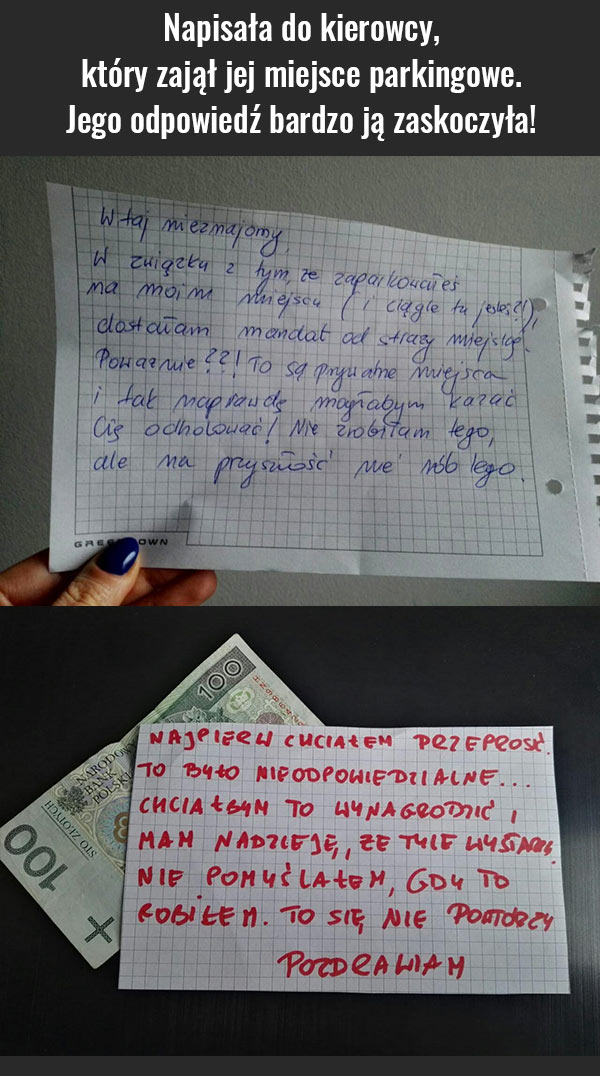 Napisała do kierowcy,
który zajął jej miejsce parkingowe.
Jego odpowiedź bardzo ją zaskoczyła!
Witaj nieznajomy,
W związku z tym, że zaparkowałeś
na moim miejscu (i ciągle tu jesteś?!),
dostałam mandat od straży miejskiej.
Poważnie??! To są prywatne miejsca
i tak naprawdę mogłabym kazać
Cię odholować! Nie zrobiłam tego,
ale na przyszłość nie rób tego.
GREE OWN
100
NARODOWY
BANK
POLSKI
STO ZŁOTYCH
100
NAJPIERW CHCIAŁEM PRZEPROSIĆ.
TO BYŁO NIEODPOWIEDZIALNE...
CHCIAŁBYM TO WYNAGRODZIĆ I
MAM NADZIEJĘ, ŻE TYLE WYSTARCZY.
NIE POMYŚLAŁEM, GDY TO
ROBIŁEM. TO SIĘ NIE POWTÓRZY
POZDRAWIAM